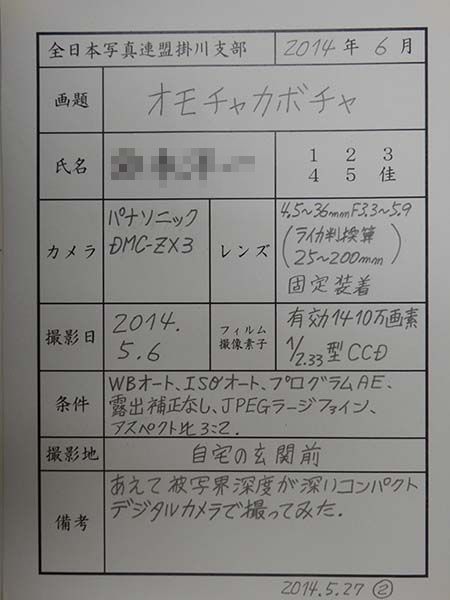 全日本写真連盟掛川支部 2014年 6月
画題 オモチャカボチャ
氏名 1 2 3
4 5 佳
カメラ パナソニック
DMC-ZX3
レンズ 4.5~36mmF3.3~5.9
(ライカ判換算
25~200mm)
固定装着
撮影日 2014.
5.6
フィルム
撮像素子
有効1410万画素
1/2.33型CCD
条件 WBオート、ISOオート、プログラムAE、
露出補正なし、JPEGラージファイン、
アスペクト比3:2.
撮影地 自宅の玄関前
備考 あえて被写界深度が深いコンパクト
デジタルカメラで撮ってみた.
2014.5.27 ②